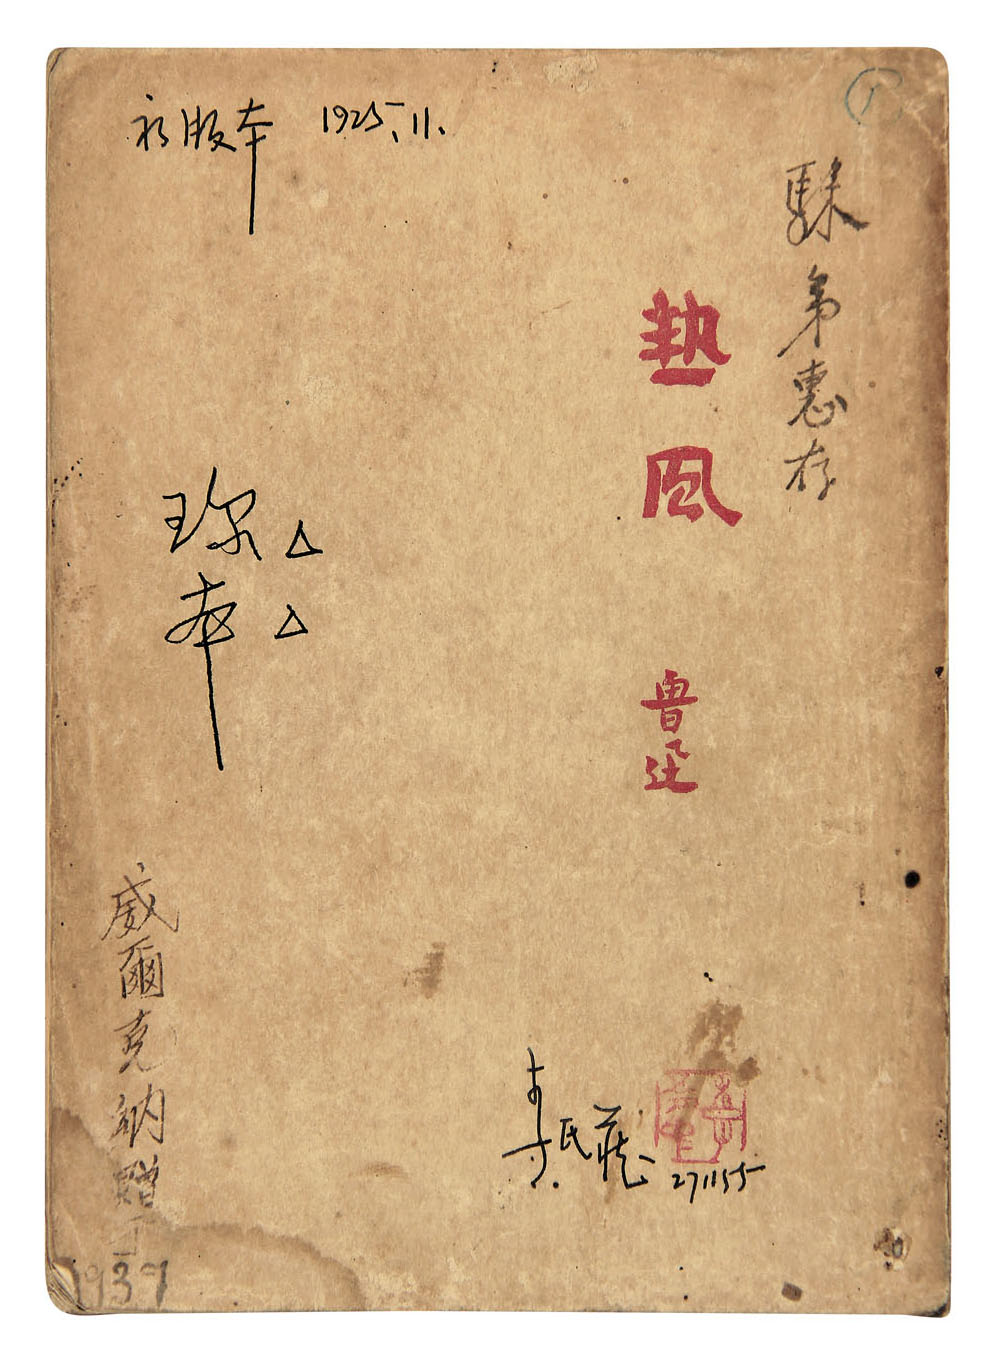 初版本 1925.11.
騄弟惠存
热风
魯迅
珍
本
威爾克納贈于
1937
氏藏
271155